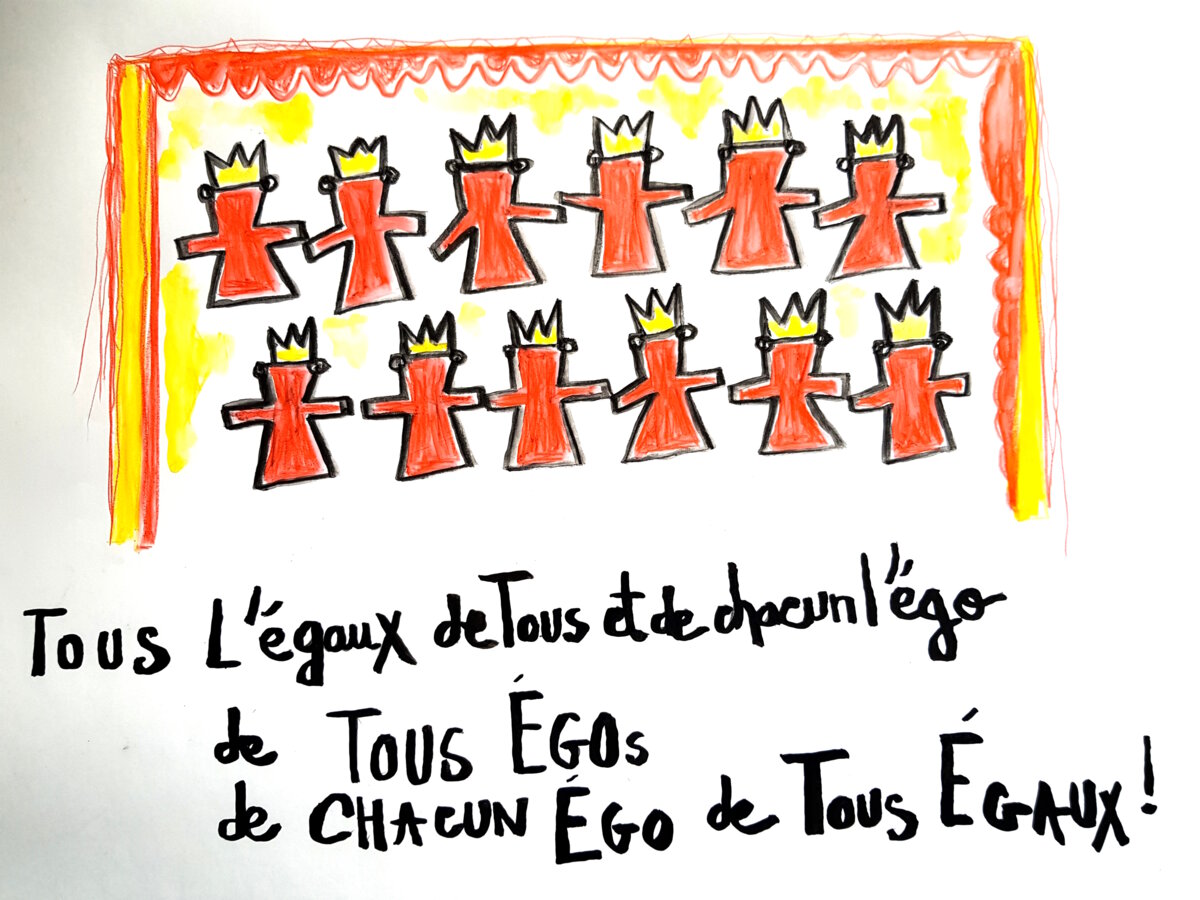 Tous L'égaux de Tous et de chacun l'égo
de TOUS ÉGOs
de CHACUN ÉGO de Tous ÉGAUX !